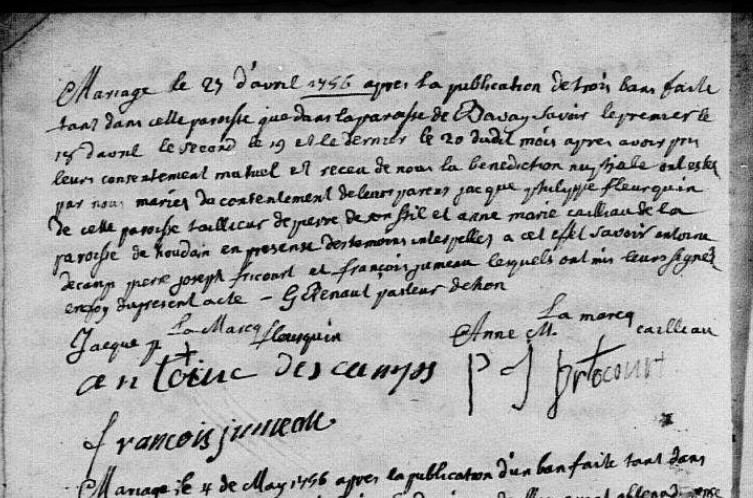 Mariage le 27 d'avril 1756 apres la publication de trois bans faite
tant dans cette paroisse que dans la paroisse de Bavay savoir le premier le
18 d'avril le second le 19 et le dernier le 20 dudit mois apres avoir pris
leurs consentement mutuel et receu de nous la benediction nuptiale ont estez
par nous mariez du consentement de leurs parens jacque philippe fleurquin
de cette paroisse tailleur de pierre de son stil et anne marie cailliau de la
paroisse de houdain en presense des temoins interpellez a cet effet savoir antoine
decamp pierre joseph fricourt et françois jumeau lesquels ont mis leurs signez
en foy du present acte - pasteur dehon
La Marcq La marcq
Jacque p. fleurquin Anne M. cailleau
antoine descamps P J
francois jumeau
Mariage le 4 de May 1756 apres la publication d'un ban faite tant dans